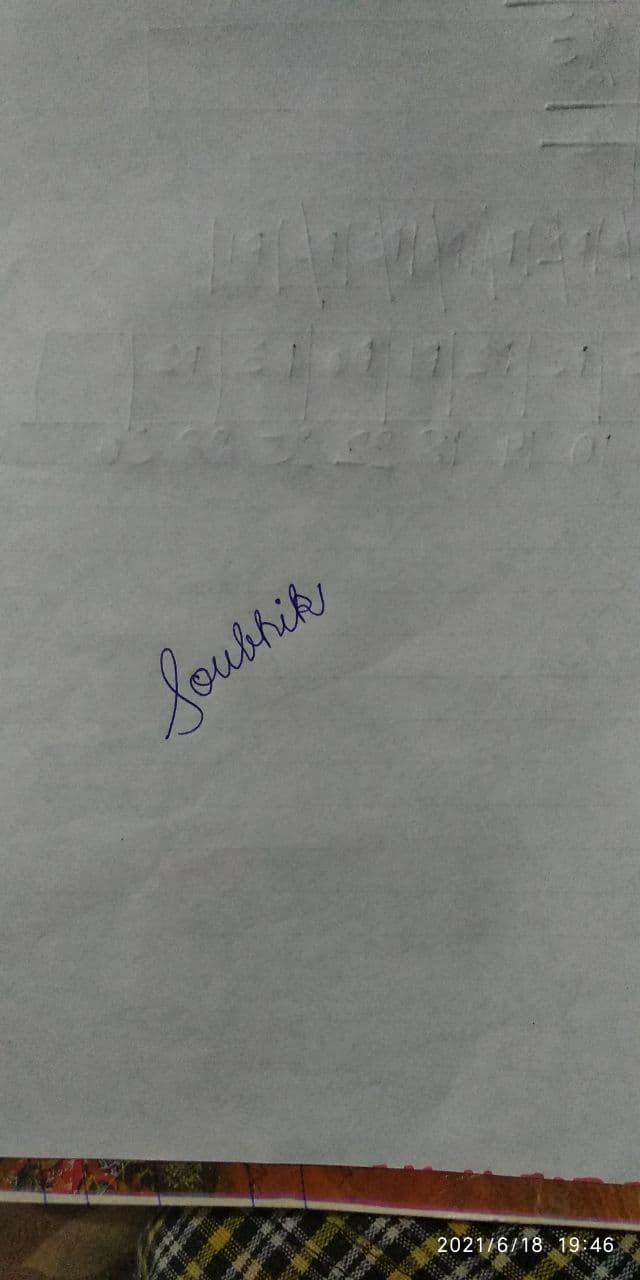 Soubhik
2021/6/18 19:46